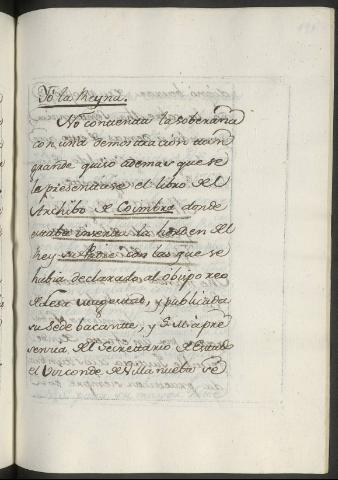 Yo la Reyna.
No contenta la soberana
con una demostracion tan
grande quiso ademas que se
le presentase el libro del
Archibo de Coimbra donde
estaba inserta la horden del
Rey su Padre con las que se
habia declarado al Obispo reo
de lesa magestad, y publicada
su Sede bacante, y S. M. à pre
sencia del Secretario de Estado
el Vizconde de Villanueba